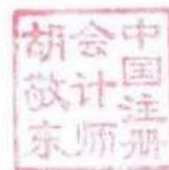 中国注册
会计师
胡敬东